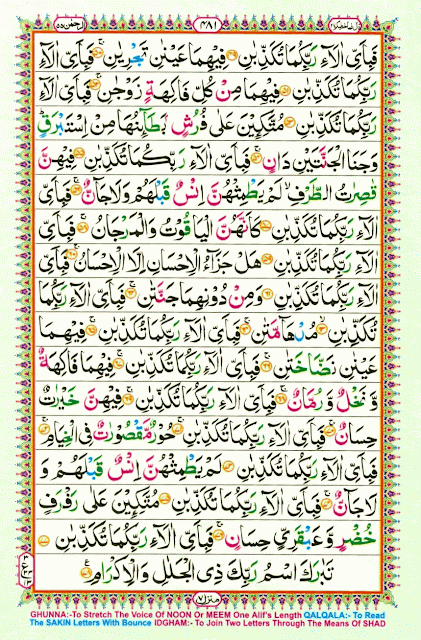 الرحمن ٥٥ ٤٨١ قال فما خطبكم ٢٧
فَبِاَىِّ اٰلَآءِ رَبِّكُمَا تُكَذِّبٰنِ ۝ فِيْهِمَا عَيْنٰنِ تَجْرِيٰنِ ۝ فَبِاَىِّ اٰلَآءِ
رَبِّكُمَا تُكَذِّبٰنِ ۝ فِيْهِمَا مِنْ كُلِّ فَاكِهَةٍ زَوْجٰنِ ۝ فَبِاَىِّ اٰلَآءِ
رَبِّكُمَا تُكَذِّبٰنِ ۝ مُتَّكِـِٕيْنَ عَلٰى فُرُشٍۭ بَطَآىِٕنُهَا مِنْ اِسْتَبْرَقٍ
وَجَنَا الْجَنَّتَيْنِ دَانٍ ۝ فَبِاَىِّ اٰلَآءِ رَبِّكُمَا تُكَذِّبٰنِ ۝ فِيْهِنَّ
قٰصِرٰتُ الطَّرْفِ لَمْ يَطْمِثْهُنَّ اِنْسٌ قَبْلَهُمْ وَلَا جَآنٌّ ۝ فَبِاَىِّ
اٰلَآءِ رَبِّكُمَا تُكَذِّبٰنِ ۝ كَاَنَّهُنَّ الْيَاقُوْتُ وَالْمَرْجَانُ ۝ فَبِاَىِّ
اٰلَآءِ رَبِّكُمَا تُكَذِّبٰنِ ۝ هَلْ جَزَآءُ الْاِحْسَانِ اِلَّا الْاِحْسَانُ ۝ فَبِاَىِّ
اٰلَآءِ رَبِّكُمَا تُكَذِّبٰنِ ۝ وَمِنْ دُوْنِهِمَا جَنَّتٰنِ ۝ فَبِاَىِّ اٰلَآءِ رَبِّكُمَا
تُكَذِّبٰنِ ۝ مُدْهَآمَّتٰنِ ۝ فَبِاَىِّ اٰلَآءِ رَبِّكُمَا تُكَذِّبٰنِ ۝ فِيْهِمَا
عَيْنٰنِ نَضَّاخَتٰنِ ۝ فَبِاَىِّ اٰلَآءِ رَبِّكُمَا تُكَذِّبٰنِ ۝ فِيْهِمَا فَاكِهَةٌ
وَّنَخْلٌ وَّرُمَّانٌ ۝ فَبِاَىِّ اٰلَآءِ رَبِّكُمَا تُكَذِّبٰنِ ۝ فِيْهِنَّ خَيْرٰتٌ
حِسَانٌ ۝ فَبِاَىِّ اٰلَآءِ رَبِّكُمَا تُكَذِّبٰنِ ۝ حُوْرٌ مَّقْصُوْرٰتٌ فِى الْخِيَامِ ۝
فَبِاَىِّ اٰلَآءِ رَبِّكُمَا تُكَذِّبٰنِ ۝ لَمْ يَطْمِثْهُنَّ اِنْسٌ قَبْلَهُمْ وَ
لَا جَآنٌّ ۝ فَبِاَىِّ اٰلَآءِ رَبِّكُمَا تُكَذِّبٰنِ ۝ مُتَّكِـِٕيْنَ عَلٰى رَفْرَفٍ
خُضْرٍ وَّعَبْقَرِىٍّ حِسَانٍ ۝ فَبِاَىِّ اٰلَآءِ رَبِّكُمَا تُكَذِّبٰنِ ۝
تَبٰرَكَ اسْمُ رَبِّكَ ذِى الْجَلٰلِ وَالْاِكْرَامِ ۝
منزل ٧
GHUNNA:-To Stretch The Voice Of NOON Or MEEM One Alif's Length QALQALA:-To Read
The SAKIN Letters With Bounce IDGHAM:- To Join Two Letters Through The Means Of SHAD